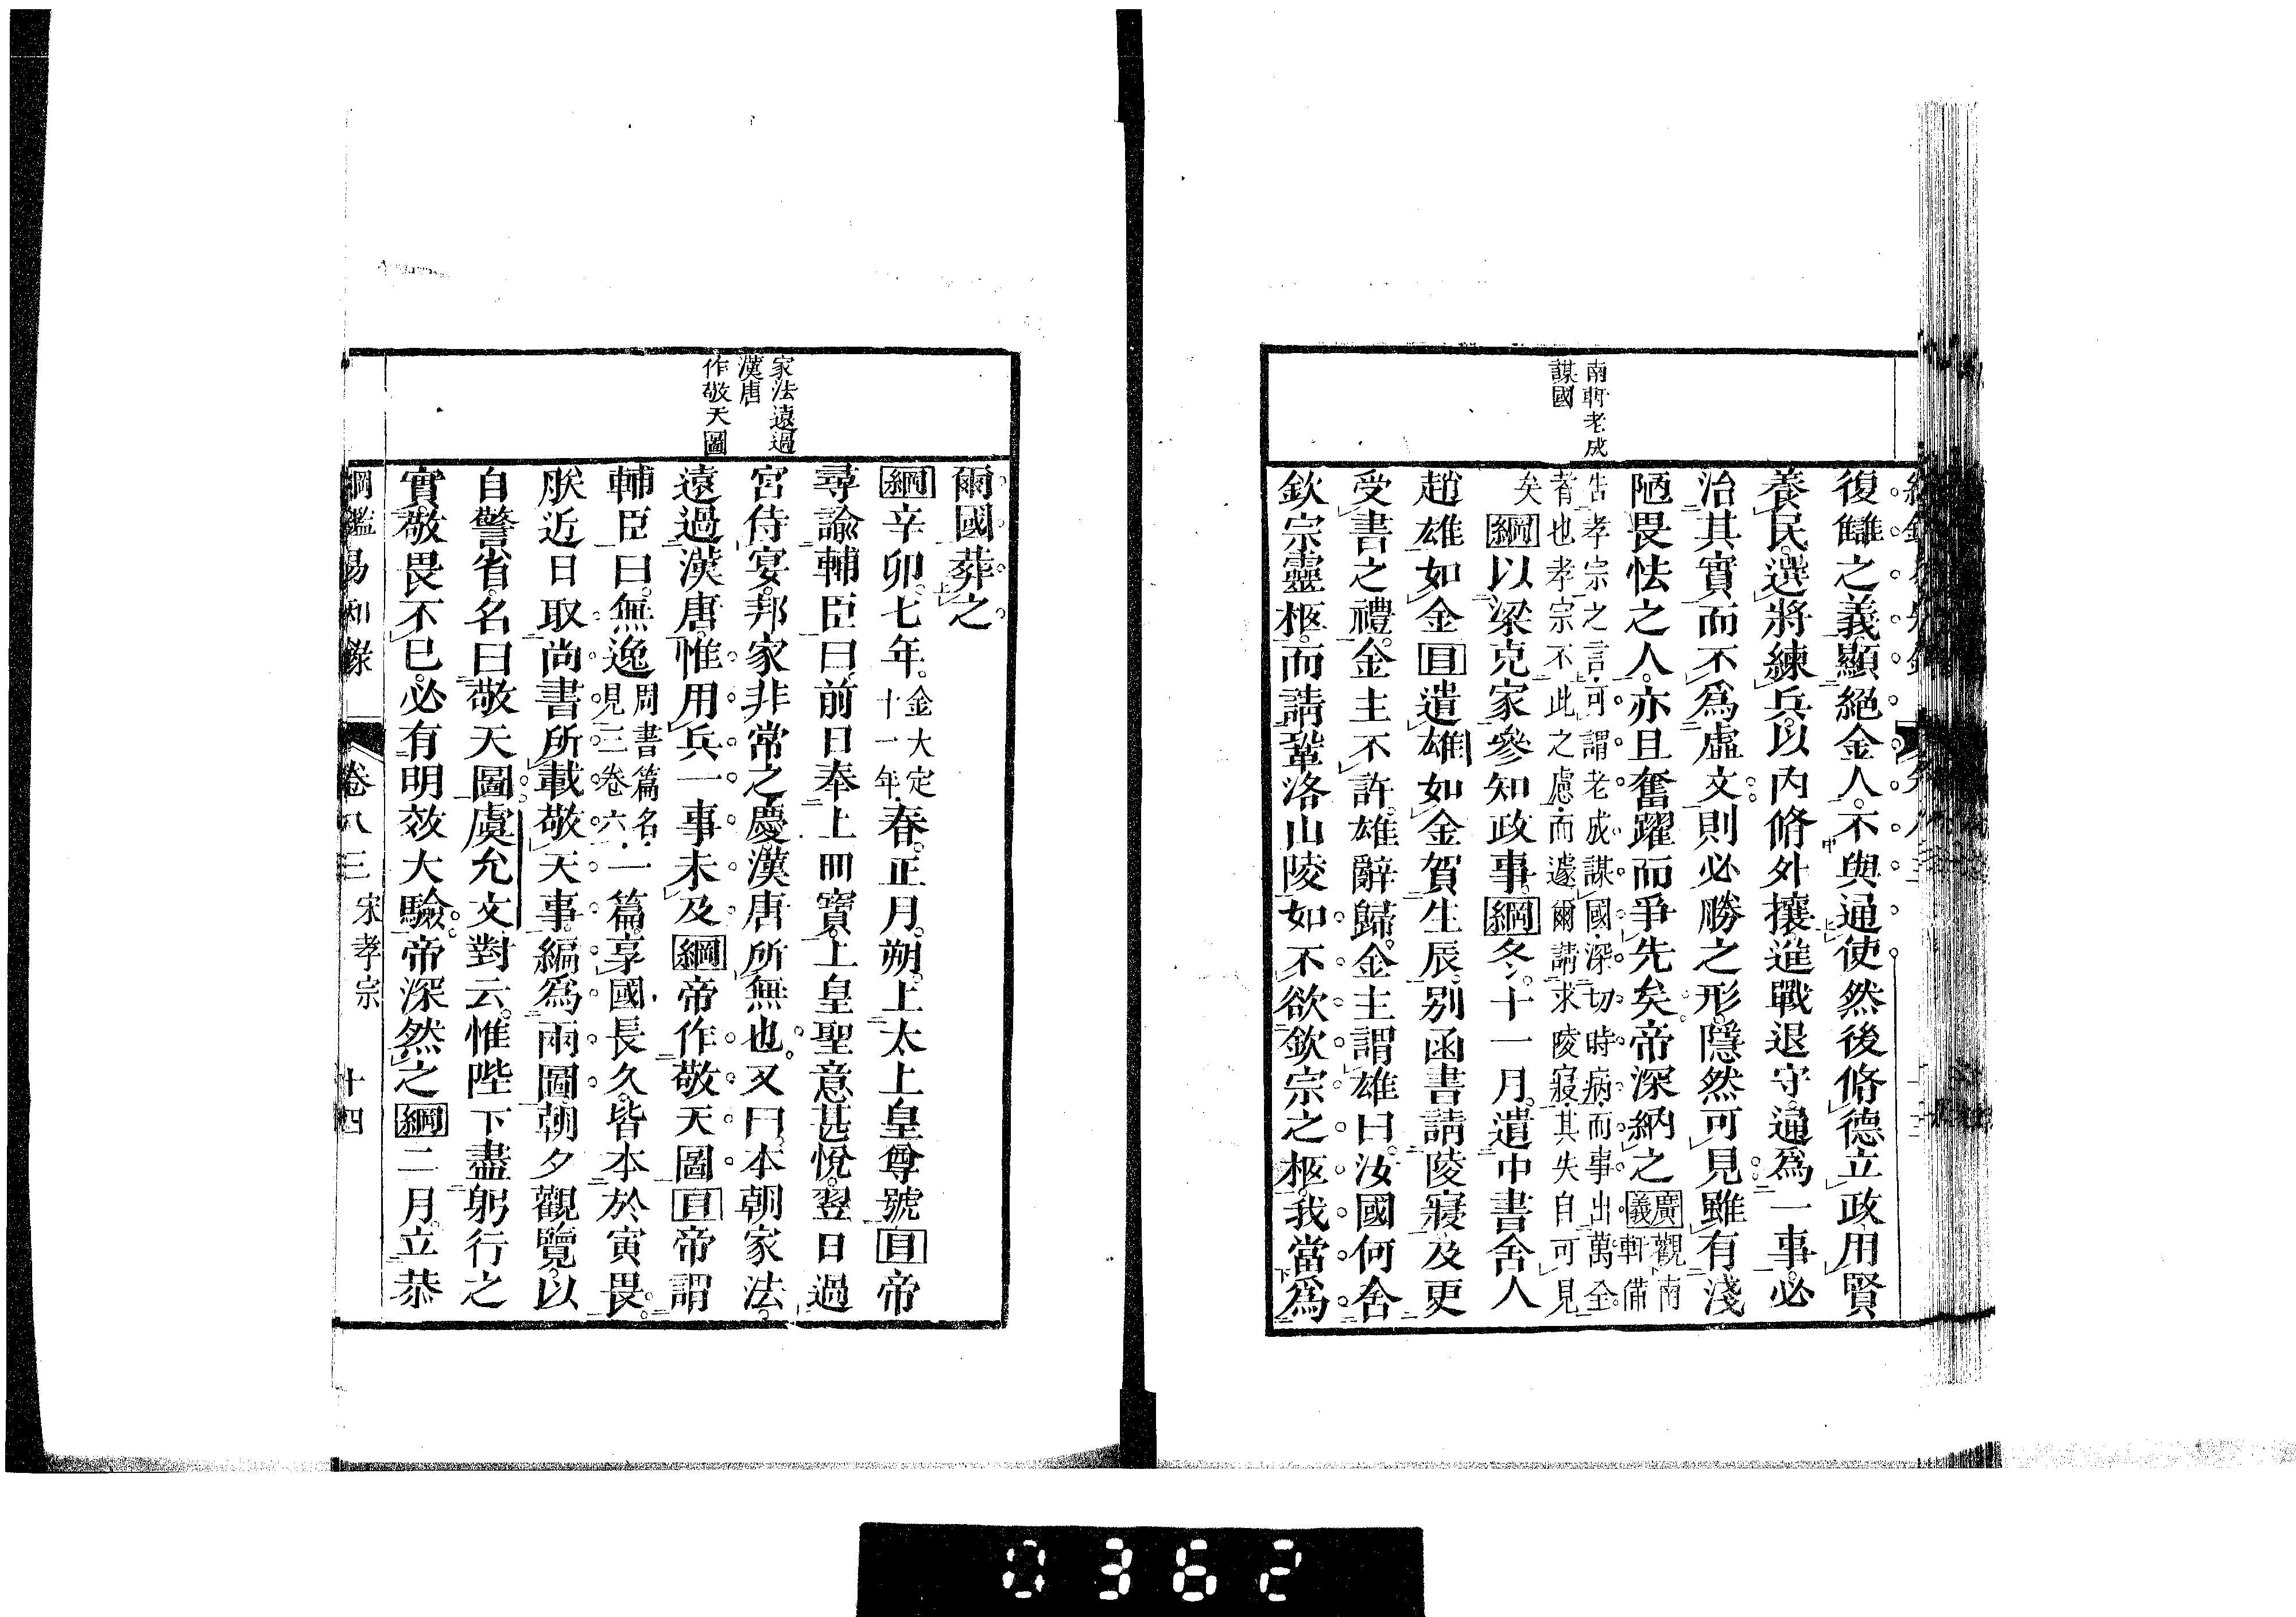 南軒老成
謀國
復讎之義顯絕金人不與通使然後脩德立政用賢
養民選將練兵以內脩外攘進戰退守通為一事必
治其實而不為虛文則必勝之形隱然可見雖有淺
陋畏怯之人亦且奮躍而爭先矣帝深納之廣義觀南軒備
告孝宗之言可謂老成謀國深切時病而事出萬全
者也孝宗不此之慮而遽爾請求陵寢其失自可見
矣綱以梁克家參知政事綱冬十一月遣中書舍人
趙雄如金目遣雄如金賀生辰別函書請陵寢及更
受書之禮金主不許雄辭歸金主謂雄曰汝國何舍
欽宗靈柩而請鞏洛山陵如不欲欽宗之柩我當為
家法遠過
漢唐
作敬天圖
爾國葬之
綱辛卯七年金大定十一年春正月朔上太上皇尊號目帝
尋諭輔臣曰前日奉上冊寶上皇聖意甚悅翌日過
宮侍宴邦家非常之慶漢唐所無也又曰本朝家法
遠過漢唐惟用兵一事未及綱帝作敬天圖目帝謂
輔臣曰無逸周書篇名見三卷六一篇享國長久皆本於寅畏
朕近日取尚書所載敬天事編為兩圖朝夕觀覽以
自警省名曰敬天圖虞允文對云惟陛下盡躬行之
實敬畏不已必有明效大驗帝深然之綱二月立恭
綱鑑易知錄 卷八三 宋孝宗 十四
0362